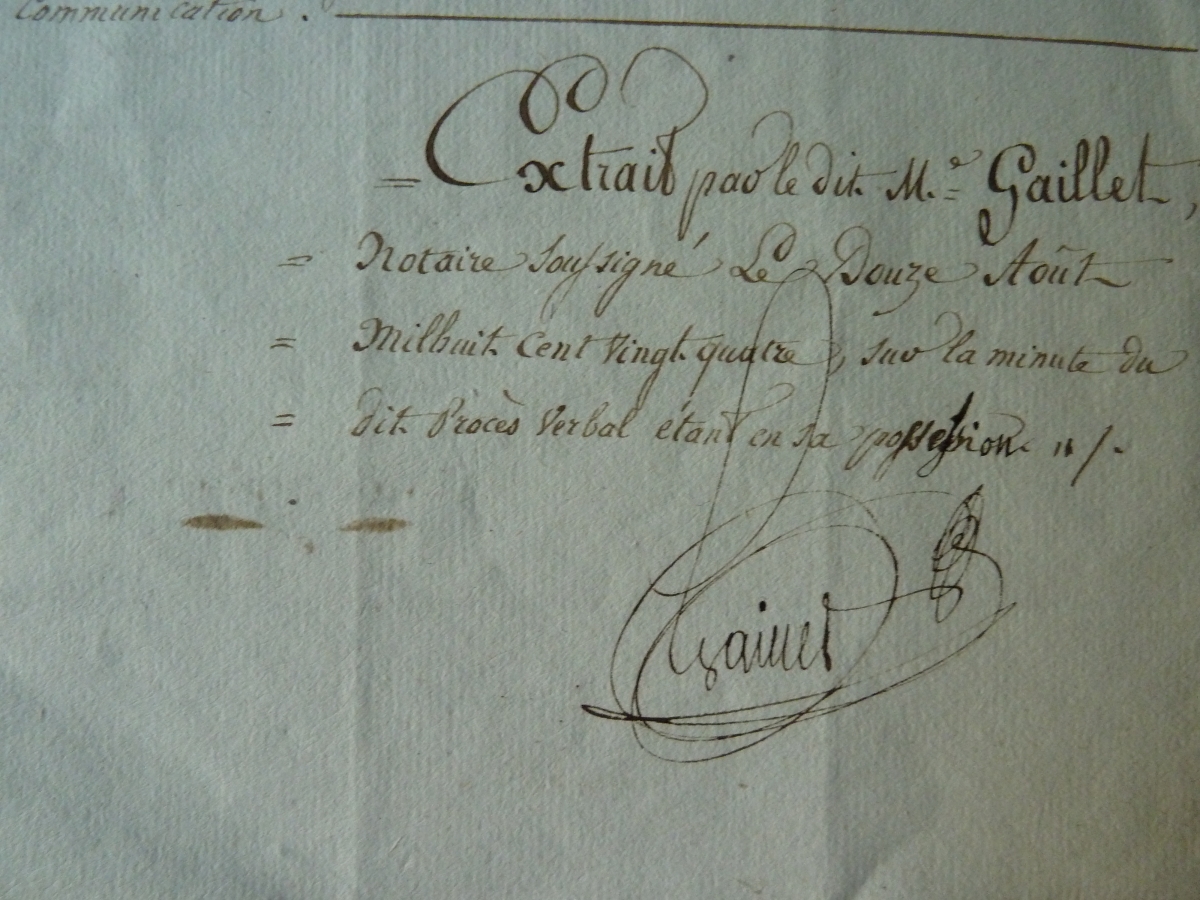 Communication.
= Extrait par le dit M.e = Gaillet,
= Notaire soussigné Le Douze Août
= Milhuit Cent Vingt quatre, sur la minute du
= dit Procès Verbal étant en sa possession "/.
Gaillet